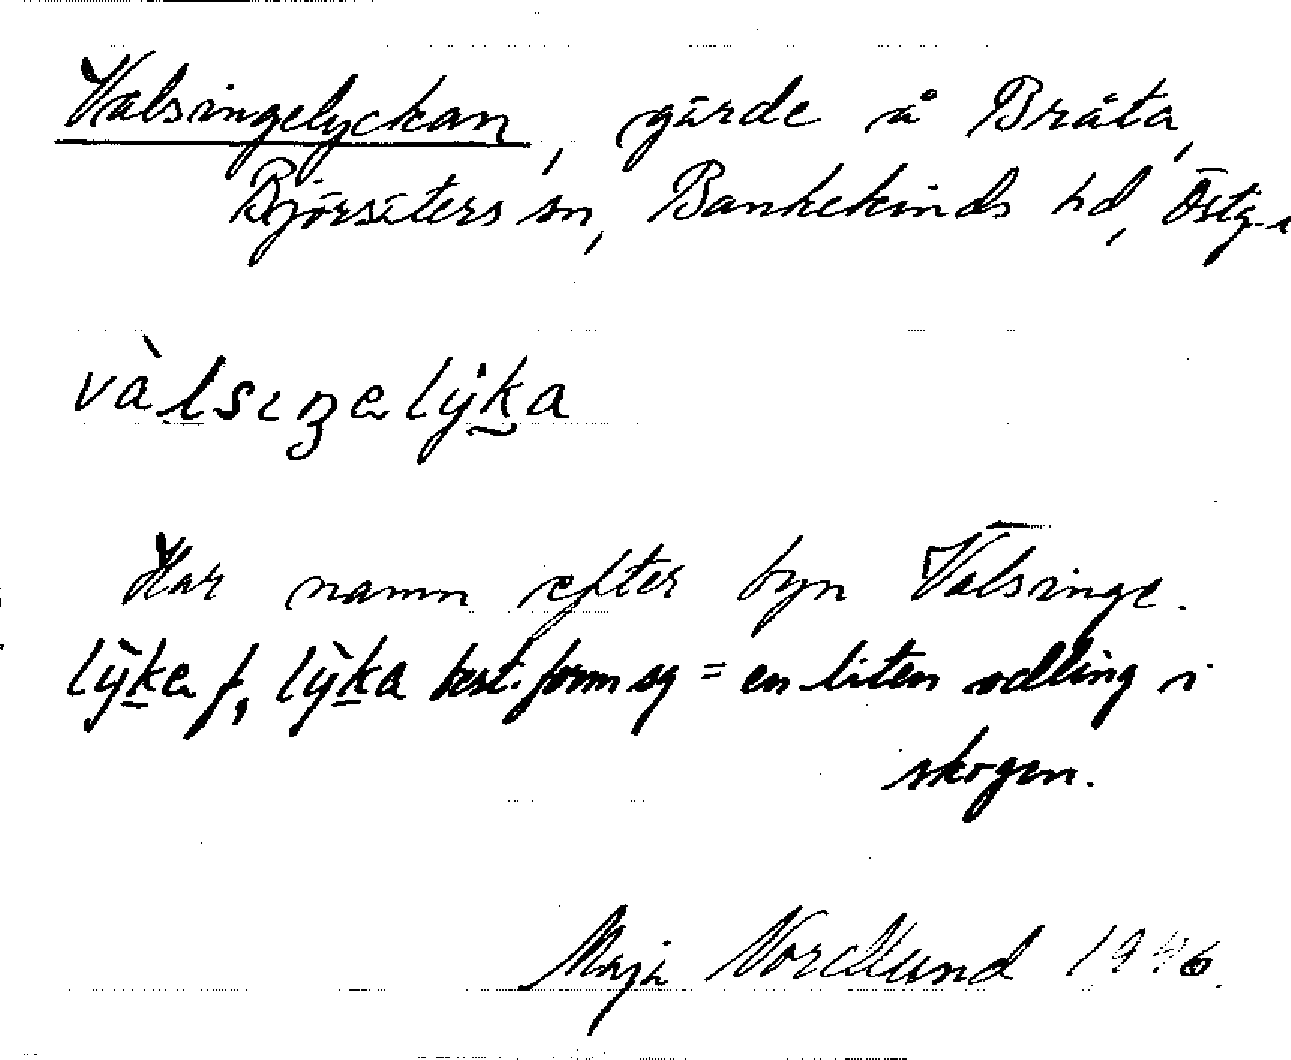 Valsingelyckan, gärde å Bråta,
Björsäters sn, Bankekinds hd, Östg.
vàlsıŋelỳka
Har namn efter byn Valsinge.
lỳka f, lỳka best. form sg = en liten odling i
skogen.
Maja Nordlund 1946.